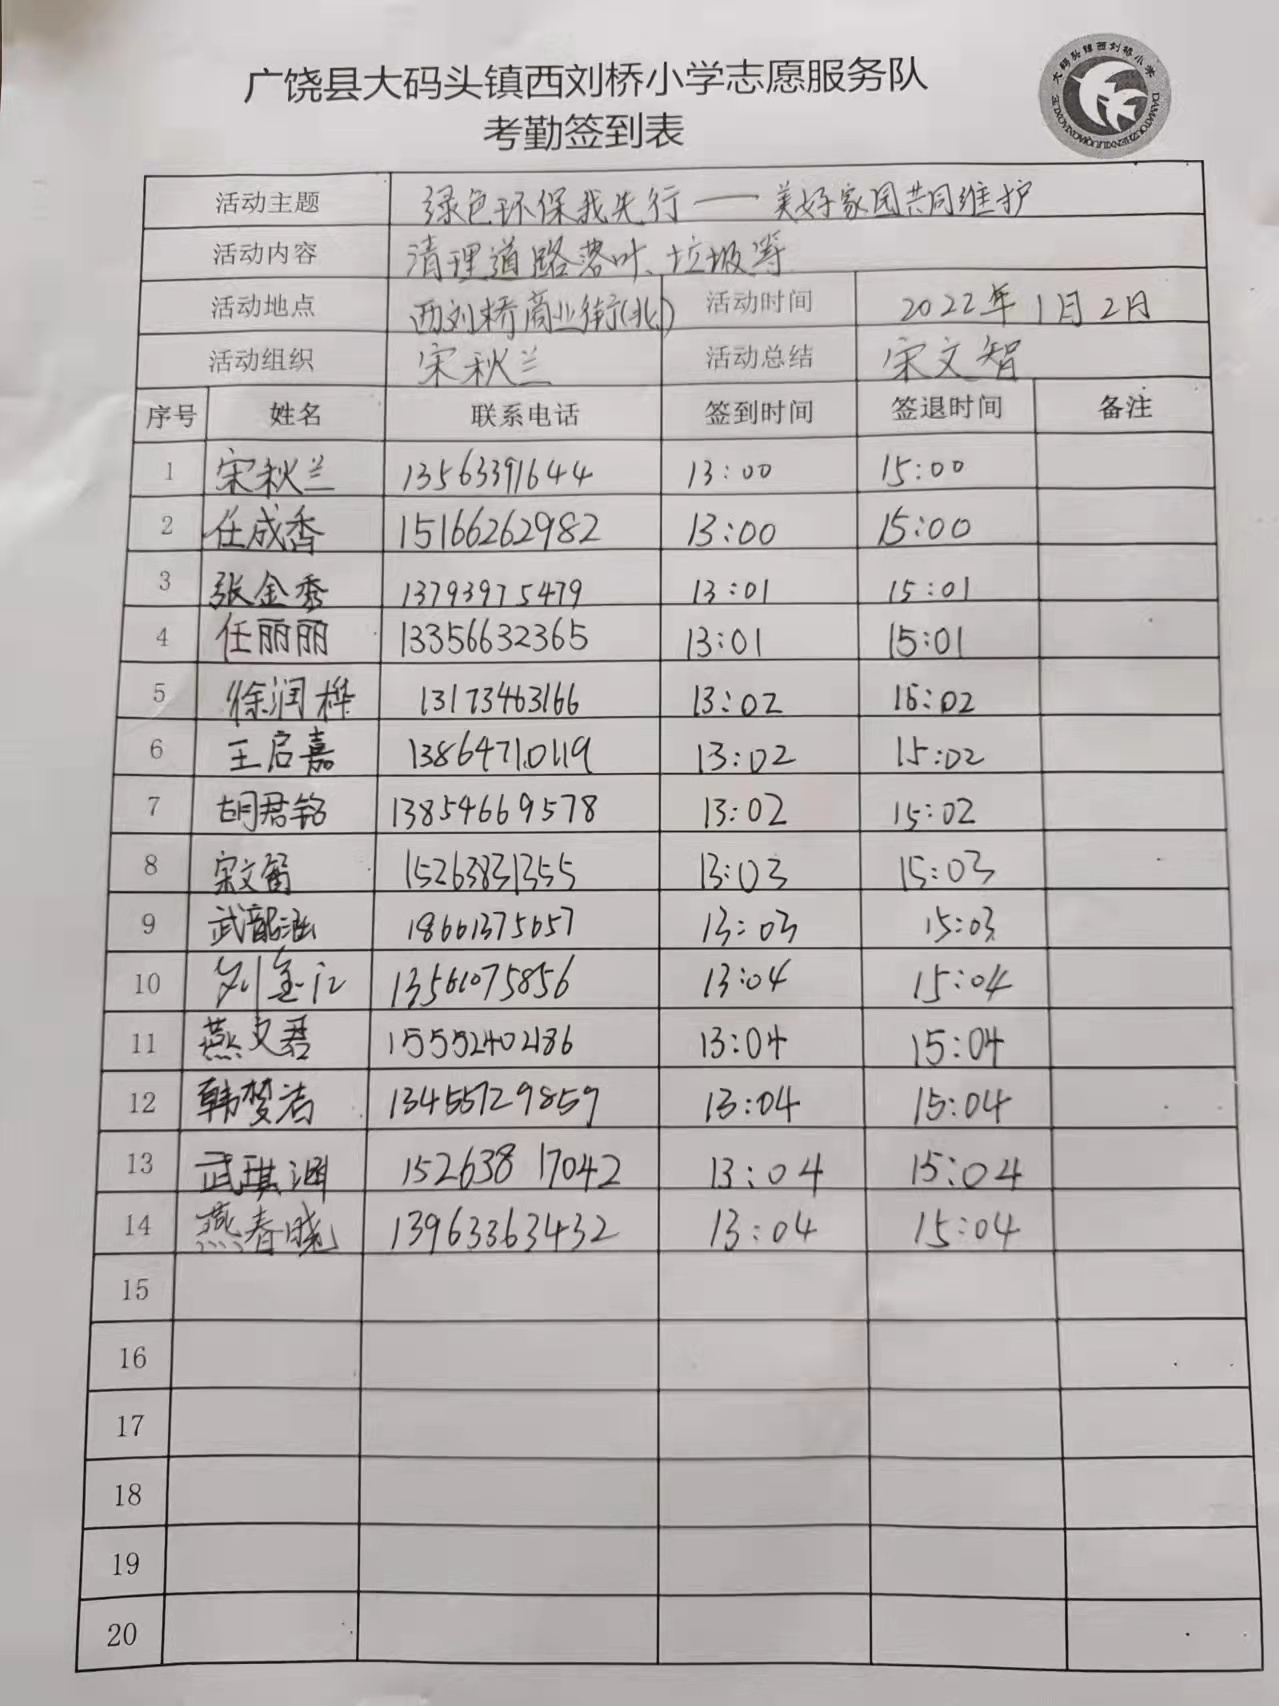 大码头镇西刘桥小学
DAMATOUZHENXILIUQIAOXIAOXUE
广饶县大码头镇西刘桥小学志愿服务队
考勤签到表
活动主题 绿色环保我先行——美好家园共同维护
活动内容 清理道路落叶、垃圾等
活动地点 西刘桥商业街(北) 活动时间 2022年1月2月
活动组织 宋秋兰 活动总结 宋文智
序号 姓名 联系电话 签到时间 签退时间 备注
1 宋秋兰 13563391644 13:00 15:00
2 任成香 15166262982 13:00 15:00
3 张金秀 13793975479 13:01 15:01
4 任丽丽 13356632365 13:01 15:01
5 徐润桦 13173463166 13:02 15:02
6 王启嘉 13864710119 13:02 15:02
7 胡君铭 13854669578 13:02 15:02
8 宋文智 15263831355 13:03 15:03
9 武韶涵 18661375657 13:03 15:03
10 刘金江 13561075856 13:04 15:04
11 燕文君 15552402186 13:04 15:04
12 韩梦洁 13455729859 13:04 15:04
13 武琪涵 15263817042 13:04 15:04
14 燕春晓 13963363432 13:04 15:04
15
16
17
18
19
20